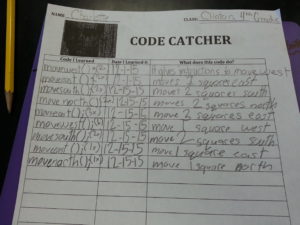 NAME: Charlotte CLASS: Clinton's 4th Grade
CODE CATCHER
Code I Learned Date I Learned It What does this code do?
12-1-15 It gives instructions to move west
12-15 moves square east
movesouth(); 12-15-15 move 2 squares south
move north(); 12-15-15 moves 2 squares north
moveeast(); 12-15-15 move squares east
movewest(); 12-15-15 move 1 square west
movesouth(); 12-15-15 move 2 squares south
moveeast(); 12-15-15 move 1 square east
movenorth(); 12-15-15 move 1 square north